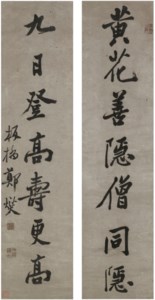 黃花善隱僧同隱
九日登高壽更高
板橋鄭燮